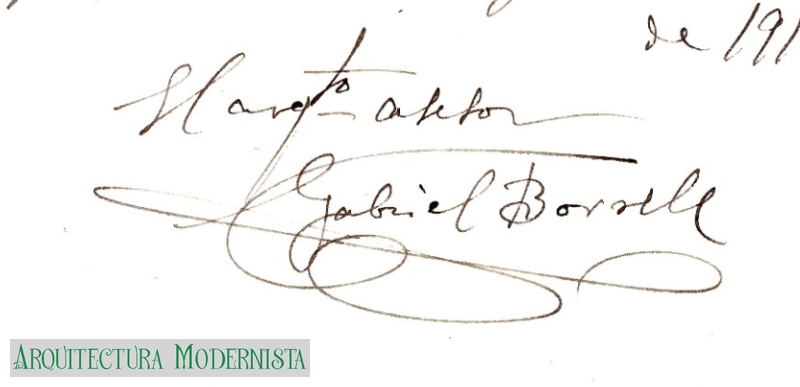 de 191
Gabriel Borrell
ARQUITECTURA MODERNISTA